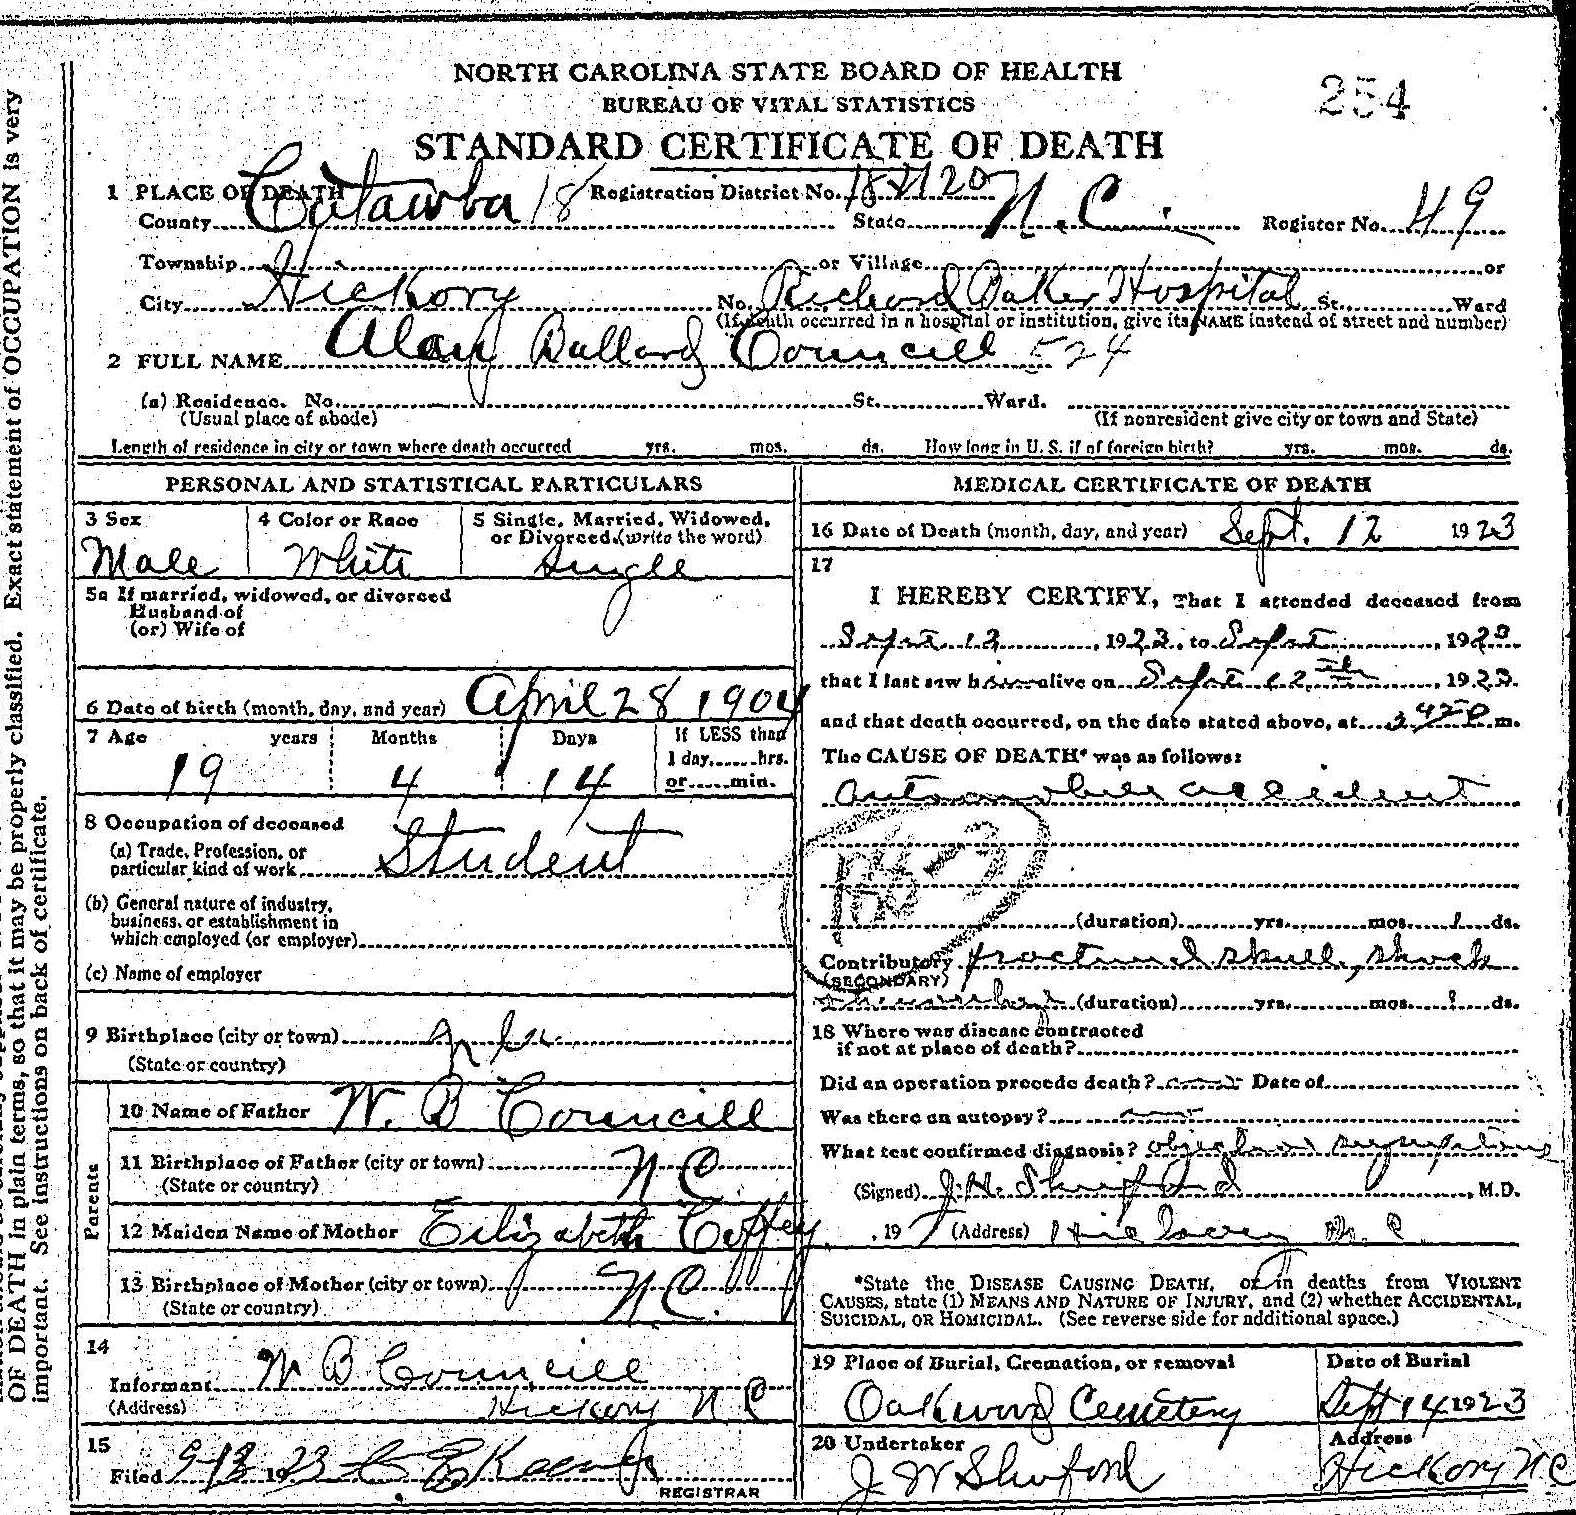 NORTH CAROLINA STATE BOARD OF HEALTH
BUREAU OF VITAL STATISTICS
254
STANDARD CERTIFICATE OF DEATH
1 PLACE OF DEATH Registration District No.
County Catawba 18 State N. C. Register No. 49
Township or Village or
City Hickory No. Richard Baker Hospital St. Ward
(If death occurred in a hospital or institution, give its NAME instead of street and number)
2 FULL NAME Alan Ballard Councill 524
(a) Residence. No. St. Ward.
(Usual place of abode) (If nonresident give city or town and State)
Length of residence in city or town where death occurred yrs. mos. ds. How long in U. S. if of foreign birth? yrs. mos. ds.
PERSONAL AND STATISTICAL PARTICULARS
3 Sex 4 Color or Race 5 Single, Married, Widowed,
or Divorced (write the word)
Male White Single
5a If married, widowed, or divorced
Husband of
(or) Wife of
6 Date of birth (month, day, and year) April 28 1904
7 Age years Months Days If LESS than
1 day, hrs.
19 4 14 or min.
8 Occupation of deceased
(a) Trade, Profession, or
particular kind of work Student
(b) General nature of industry,
business, or establishment in
which employed (or employer)
(c) Name of employer
9 Birthplace (city or town)
(State or country)
Parents
10 Name of Father W. B Councill
11 Birthplace of Father (city or town) N C
(State or country)
12 Maiden Name of Mother Elizabeth Coffey
13 Birthplace of Mother (city or town) N. C.
(State or country)
14
Informant W B Councill
(Address) Hickory N C
15
Filed 9-13 1923
REGISTRAR
MEDICAL CERTIFICATE OF DEATH
16 Date of Death (month, day, and year) Sept. 12 1923
17
I HEREBY CERTIFY, That I attended deceased from
Sept 12, 1923, to Sept, 1923
that I last saw him alive on Sept 12th, 1923.
and that death occurred, on the date stated above, at m.
The CAUSE OF DEATH* was as follows:
automobile accident
(duration) yrs. mos. 1 ds.
Contributory fractured skull, shock
(SECONDARY)
(duration) yrs. mos. ds.
18 Where was disease contracted
if not at place of death?
Did an operation precede death? Date of
Was there an autopsy?
What test confirmed diagnosis? symptoms
(Signed) J. H. Shuford, M.D.
, 19 (Address) Hickory N. C.
*State the DISEASE CAUSING DEATH, or in deaths from VIOLENT
CAUSES, state (1) MEANS AND NATURE OF INJURY, and (2) whether ACCIDENTAL,
SUICIDAL, OR HOMICIDAL. (See reverse side for additional space.)
19 Place of Burial, Cremation, or removal Date of Burial
Oakwood Cemetery Sept 14 1923
20 Undertaker Address
J W Shuford Hickory N C
OF DEATH in plain terms, so that it may be properly classified. Exact statement of OCCUPATION is very
important. See instructions on back of certificate.